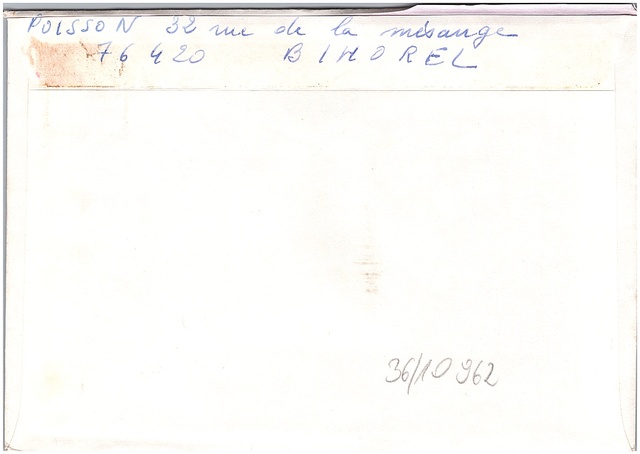 POISSON 32 rue de la mésange
76420 BIHOREL
36/10 962